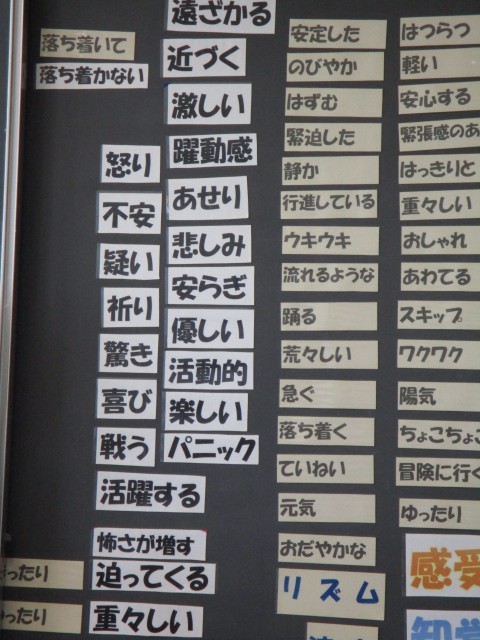 落ち着いて
落ち着かない
怒り
不安
疑い
祈り
驚き
喜び
戦う
活躍する
怖さが増す
迫ってくる
重々しい
ったり
ったり
遠ざかる
近づく
激しい
躍動感
あせり
悲しみ
安らぎ
優しい
活動的
楽しい
パニック
安定した
のびやか
はずむ
緊迫した
静か
行進している
ウキウキ
流れるような
踊る
荒々しい
急ぐ
落ち着く
ていねい
元気
おだやかな
リズム
はつらつ
軽い
安心する
緊張感のあ
はっきりと
重々しい
おしゃれ
あわてる
スキップ
ワクワク
陽気
ちょこちょこ
冒険に行く
ゆったり
感受
知覚